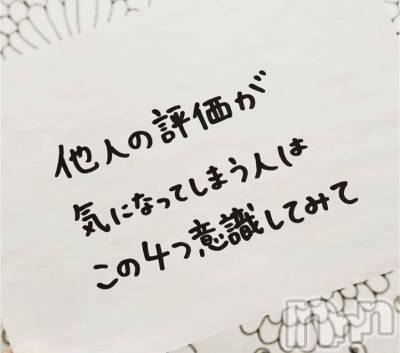 他人の評価が
気になってしまう人は
この4つ意識してみて